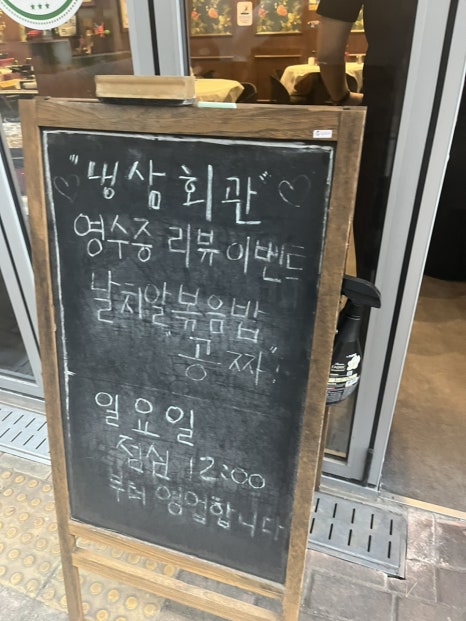 "냉삼회관"
영수증 리뷰이벤트
날치알볶음밥
"공짜"!
일요일
점심 12:00
부터 영업합니다